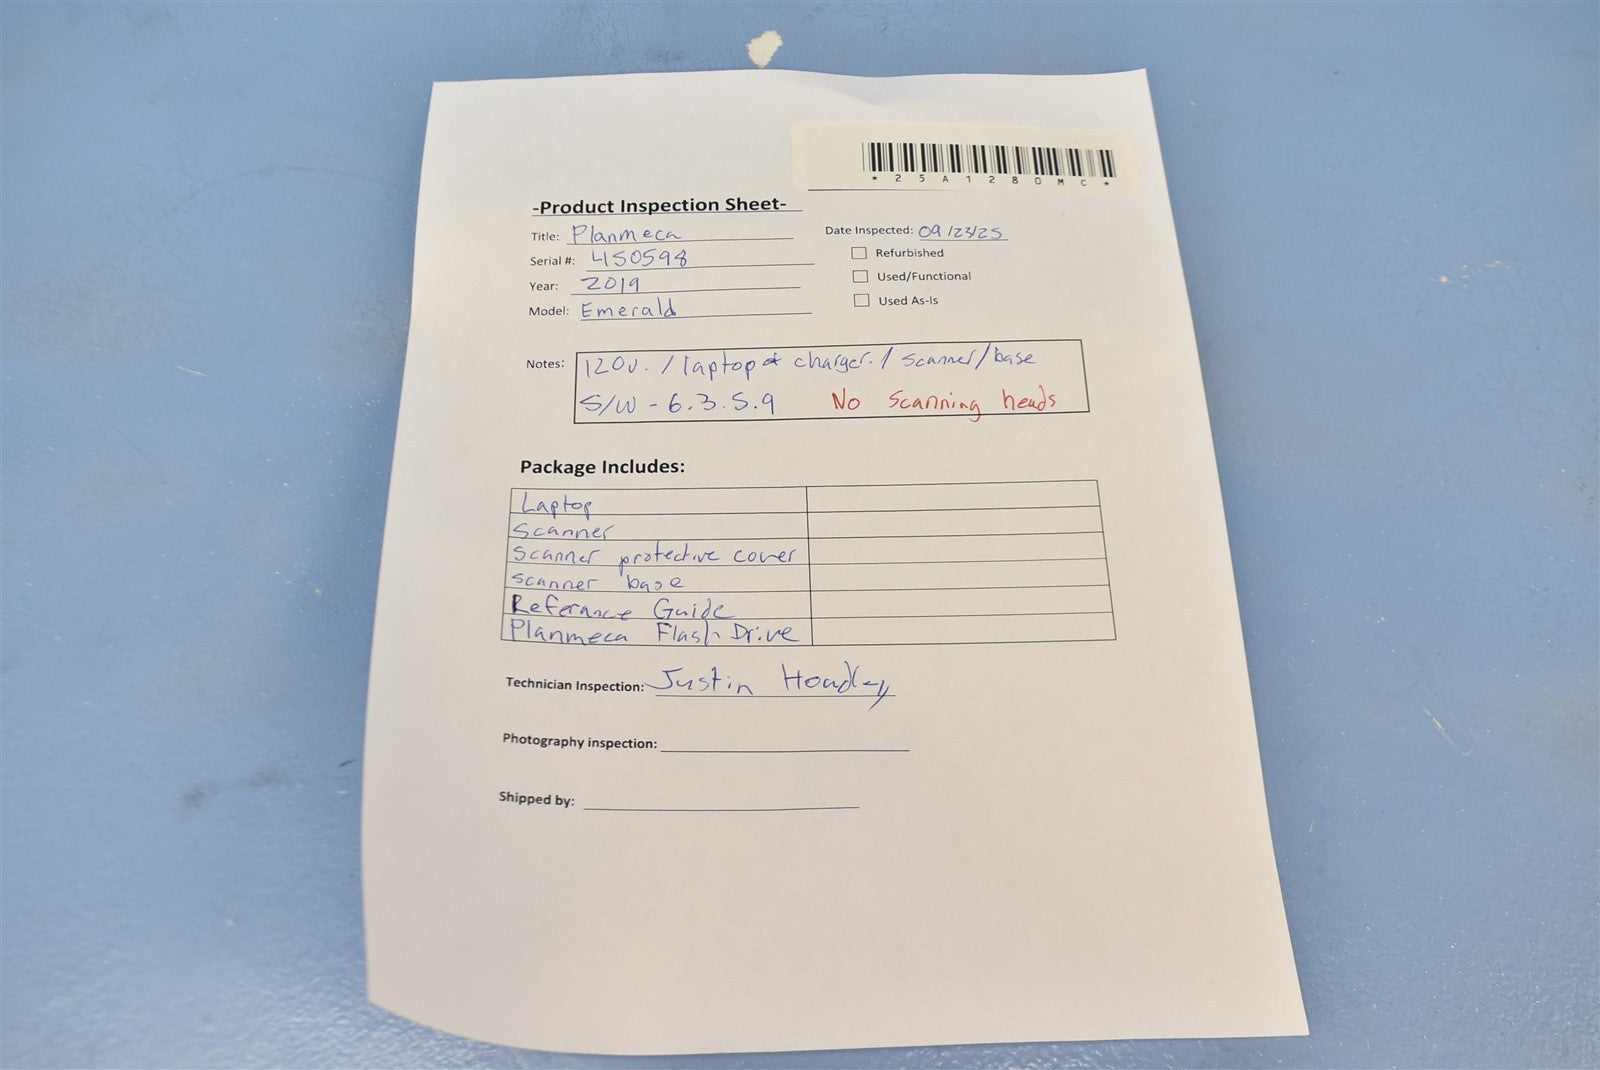 *25A1280MC*
-Product Inspection Sheet-
Title: Planmeca
Date Inspected: 09/23/25
Serial #: 450598
Refurbished
Year: 2019
Used/Functional
Model: Emerald
Used As-Is
Notes: 120v. / laptop & charger. / scanner/base
S/W - 6.3.5.9 No Scanning heads
Package Includes:
Laptop
Scanner
Scanner protective cover
scanner base
Referance Guide
Planmeca Flash Drive
Technician Inspection: Justin Hoadley
Photography inspection:
Shipped by: